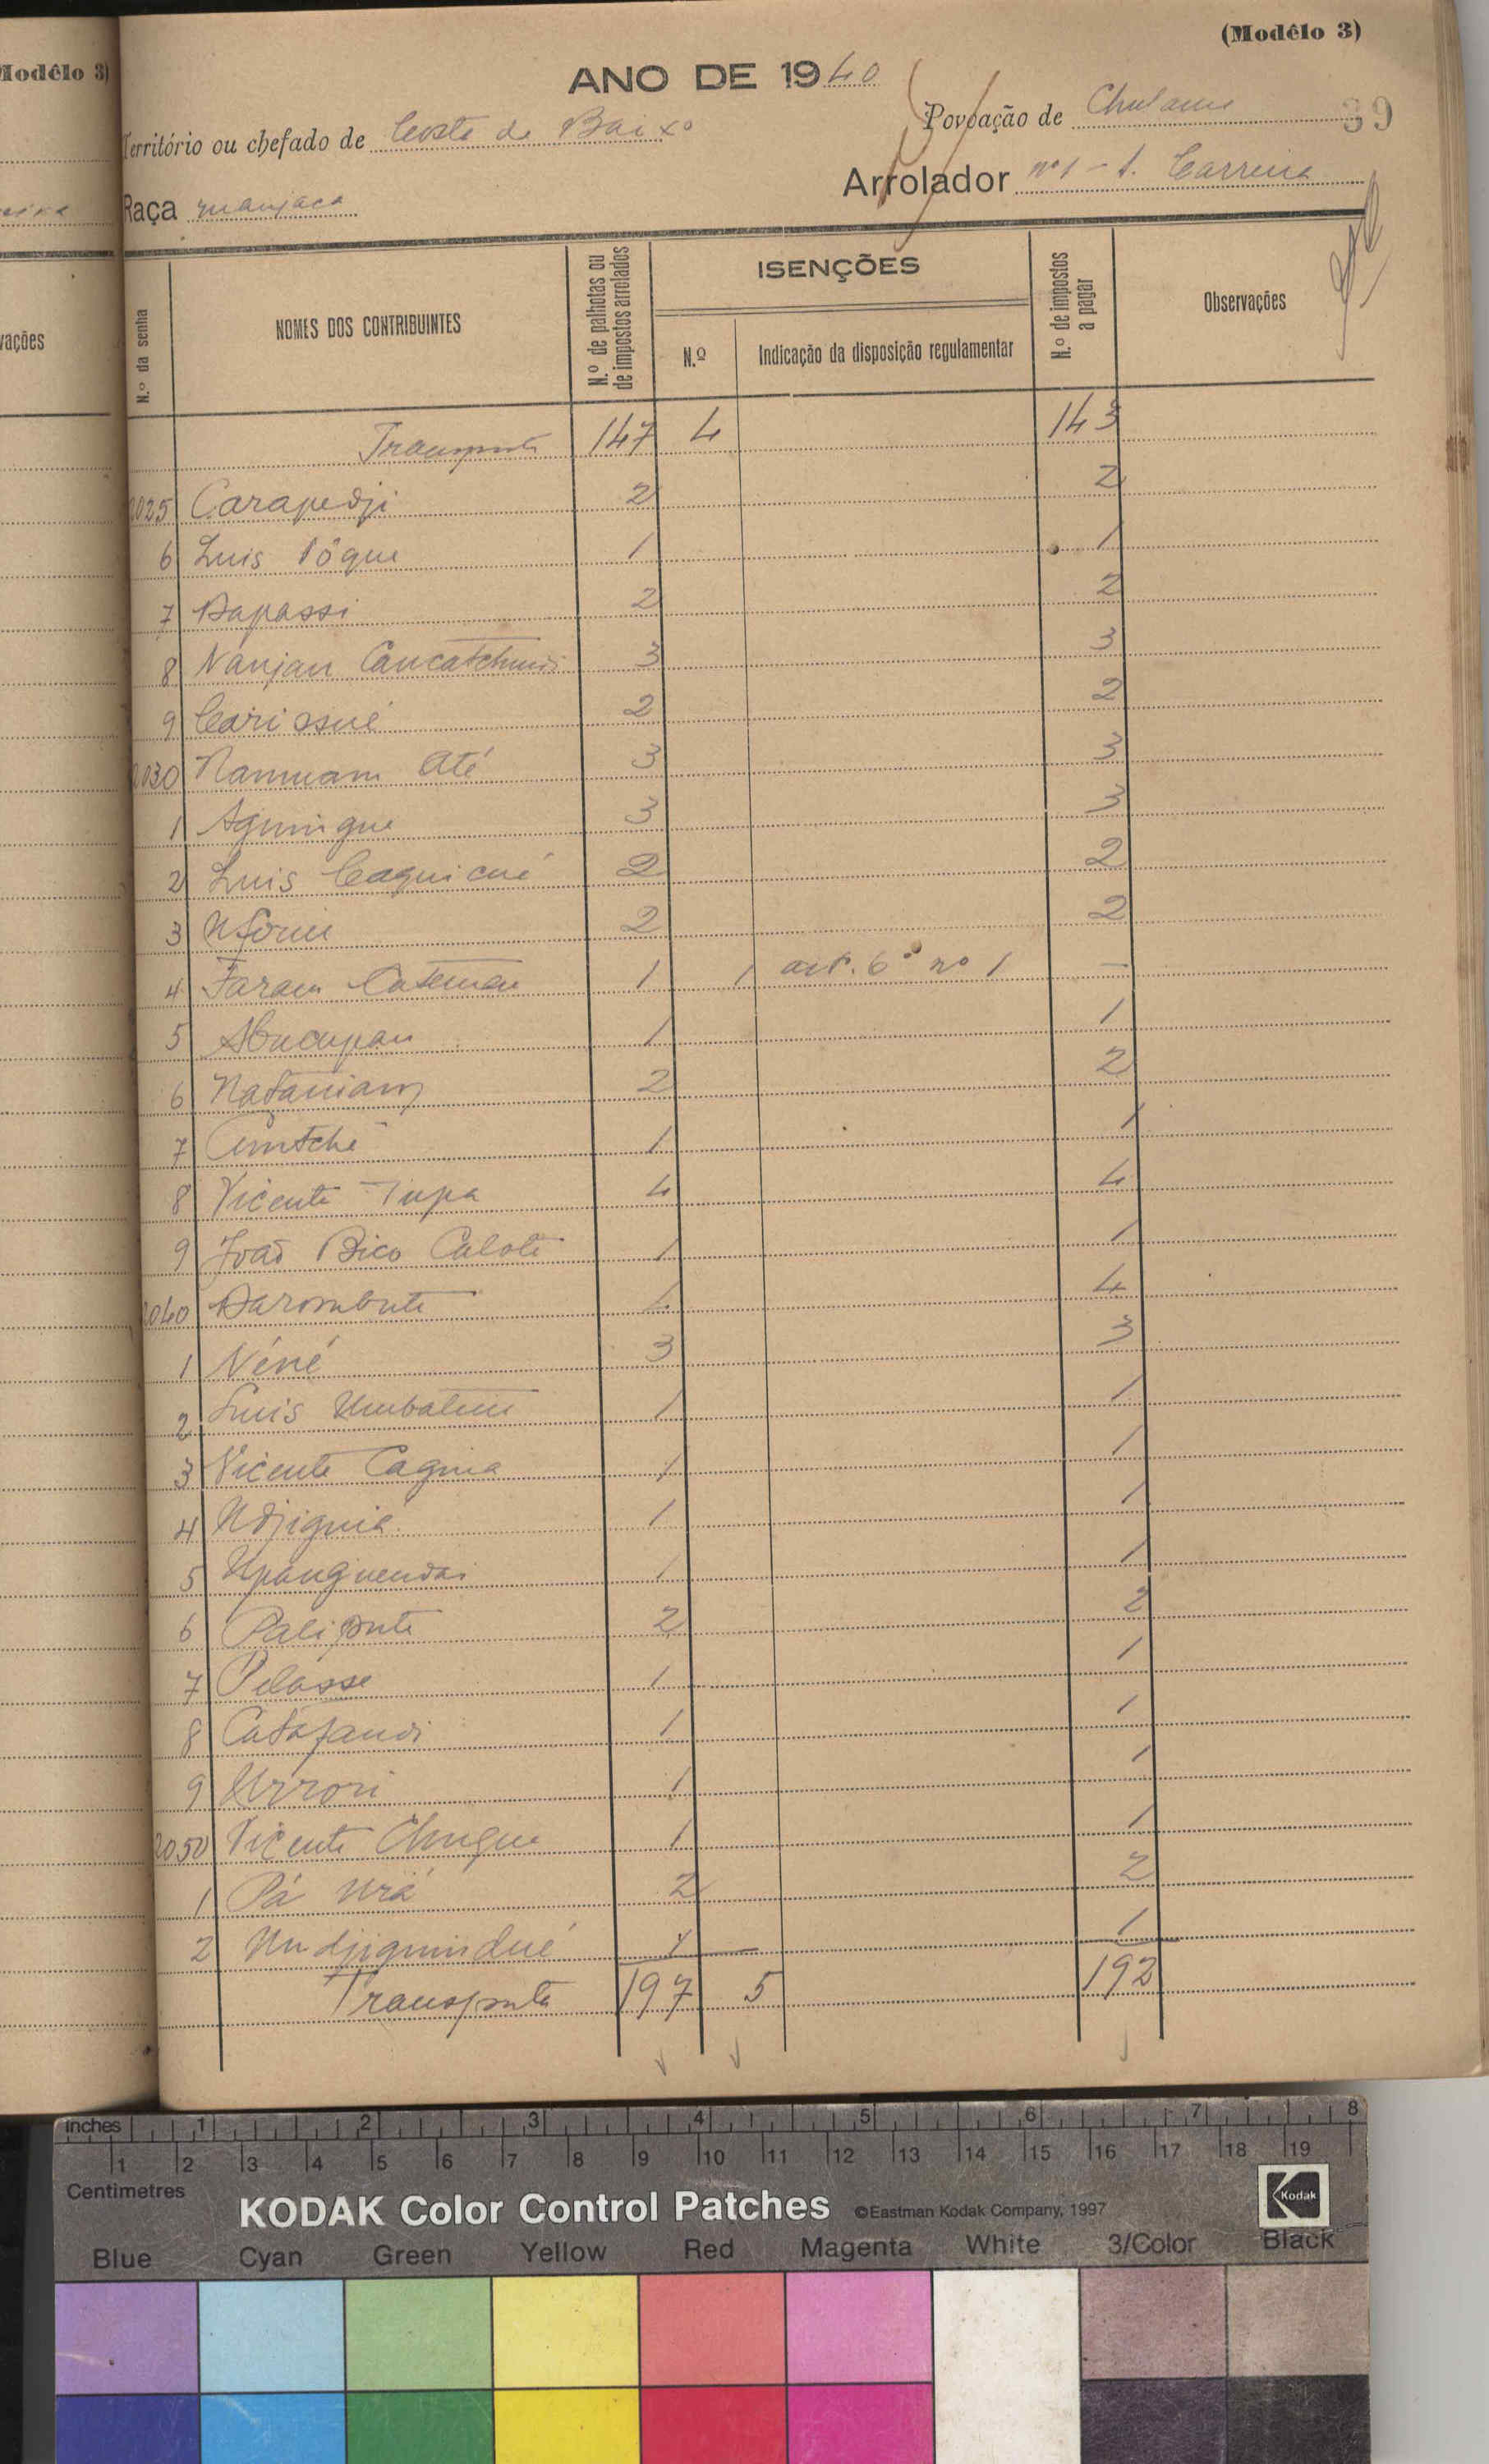 (Modêlo 3)
Modêlo 3)
ANO DE 1940
Território ou chefado de Costa de Baixo
Povoação de
39
Raça manjaca
Arrolador nº 1 - A. Carreira
vações
N.º da senha
NOMES DOS CONTRIBUINTES
N.º de palhotas ou de impostos arrolados
ISENÇÕES
N.º
Indicação da disposição regulamentar
N.º de impostos a pagar
Observações
Transporte 147 4 143
2025 Carapedji 2 2
6 Luis 1 1
7 Dapassi 2 2
8 Nanjan 3 3
9 Carissué 2 2
2030 Namuam Até 3 3
1 3 3
2 Luis Caquicué 2 2
3 2 2
4 1 1 art. 6º nº 1 —
5 1 1
6 2 2
7 1 1
8 Vicente Tupa 4 4
9 João Bico Calote 1 1
2040 Darombute 4 4
1 Néné 3 3
2 Luis 1 1
3 Vicente 1 1
4 1 1
5 1 1
6 2 2
7 Pelasse 1 1
8 Catafandi 1 1
9 Urrori 1 1
2050 Vicente 1 1
1 Pá Urá 2 2
2 1 1
Transporte 197 5 192
inches 1 2 3 4 5 6 7 8
1 2 3 4 5 6 7 8 9 10 11 12 13 14 15 16 17 18 19
Centimetres
KODAK Color Control Patches ©Eastman Kodak Company, 1997
Kodak
Blue Cyan Green Yellow Red Magenta White 3/Color Black